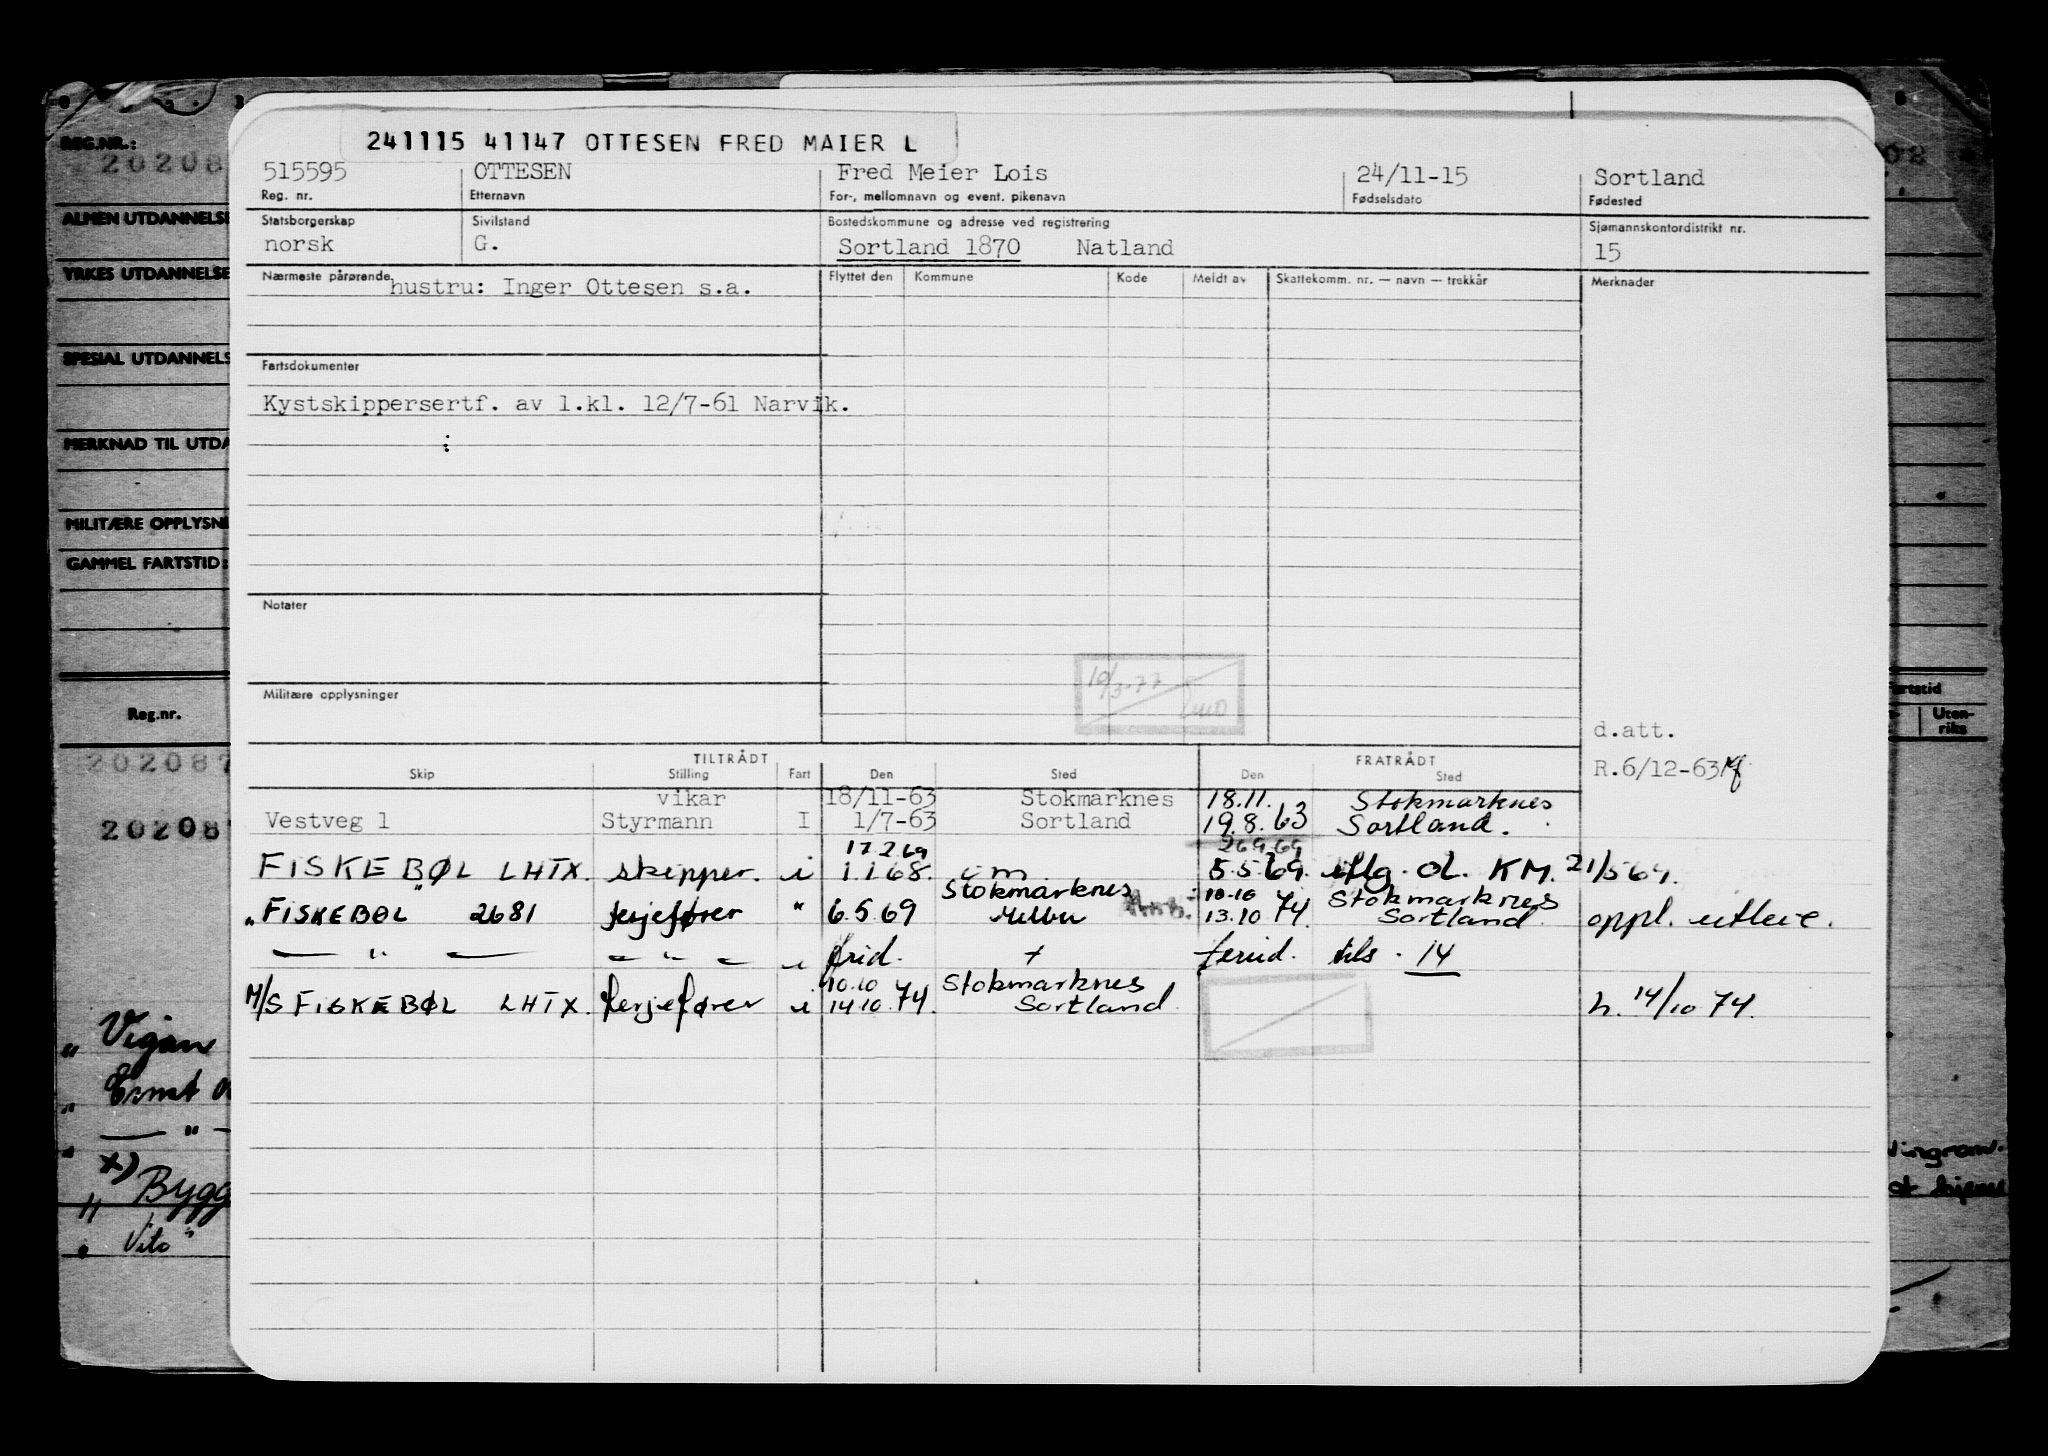 241115 41147 OTTESEN FRED MAIER L
515595 OTTESEN Fred Meier Lois 24/11-15 Sortland
Reg. nr. Etternavn For-, mellomnavn og event. pikenavn Fødselsdato Fødested
Statsborgerskap Sivilstand Bostedskommune og adresse ved registrering Sjømannskontordistrikt nr.
norsk G. Sortland 1870 Natland 15
Nærmeste pårørende hustru: Inger Ottesen s.a. Flyttet den Kommune Kode Meldt av Skattekomm. nr. — navn — trekkår Merknader
Fartsdokumenter
Kystskippersertf. av 1.kl. 12/7-61 Narvik.
Notater
19/3-77
Militære opplysninger
d.att.
TILTRÅDT FRATRÅDT
Skip Stilling Fart Den Sted Den Sted R.6/12-63
vikar 18/11-63 Stokmarknes 18.11. Stokmarknes
Vestveg 1 Styrmann I 1/7-63 Sortland 19.8.63 Sortland.
17.2.69 26969
FISKEBØL LHTX. skipper. i 1.1.68. om 5.5.69. iflg. ol. KM. 21/569.
Stokmarknes 10.10 Stokmarknes
"FISKEBØL 2681 ferjefører " 6.5.69 Melbu 13.10 74. Sortland oppl. utleie.
— " — — " — i frid. + feriid. tils. 14
10.10 Stokmarknes
M/S FISKEBØL LHTX. ferjefører i 14.10.74. Sortland h. 14/10 74.
REG.NR.:
20208
ALMEN UTDANNELSE
YRKES UTDANNELSE
SPESIAL UTDANNELS
MERKNAD TIL UTDA
MILITÆRE OPPLYSNI
GAMMEL FARTSTID:
Reg.nr.
202087
20208
" Vigan
"
— " —
x)
" Bygg
" Vito"
Uten-
riks